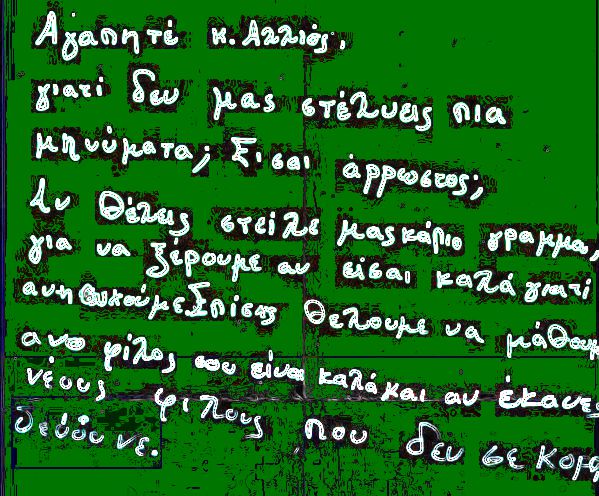 Αγαπητέ κ. Αλλιός,
γιατί δεν μας στέλνεις πια
μηνύματα; Είσαι άρρωστος;
Αν θέλεις στείλε μας κάπιο γραμμα,
για να ξέρουμε αν είσαι καλά γιατί
Επίσης θελουμε να μάθουμ
φίλος σου είναι καλά και αν έκανες
νέους φιλους που δεν σε κορ